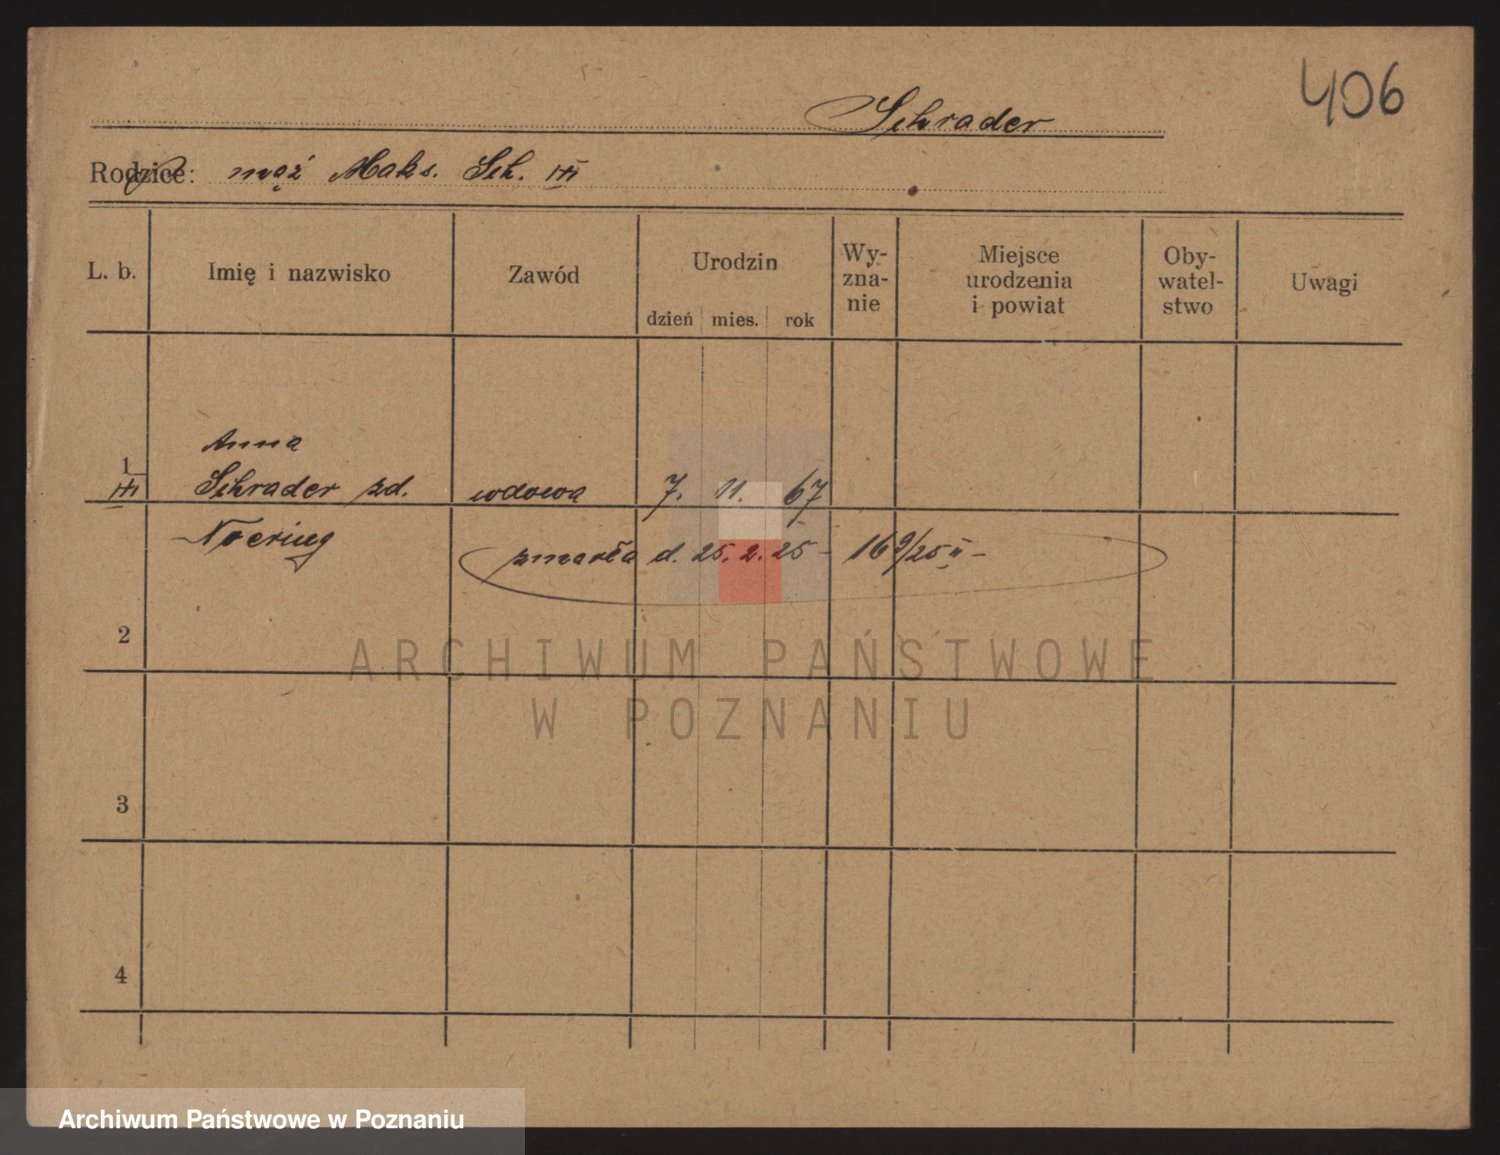 406
Schrader
Rodzice: mąż Maks. Sch.
L. b. Imię i nazwisko Zawód Urodzin Wy-zna-nie Miejsce urodzenia i powiat Oby-watel-stwo Uwagi
dzień mies. rok
Anna
1 Schrader zd. wdowa 7. 11. 67
Noering
zmarła d. 25. 2. 25 – 169/25 II –
2
3
4
ARCHIWUM PAŃSTWOWE
W POZNANIU
Archiwum Państwowe w Poznaniu